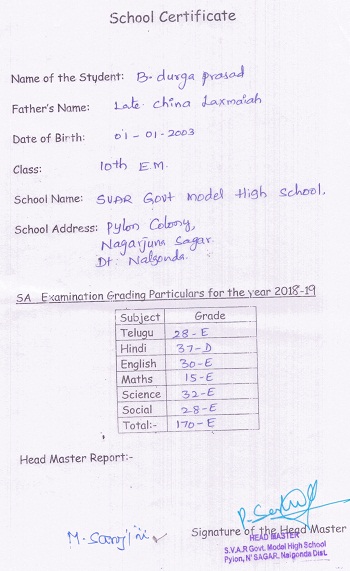 School Certificate
Name of the Student: B. durga prasad
Father's Name: Late. china Laxmaiah
Date of Birth: 01-01-2003
Class: 10th E.M.
School Name: SVAR Govt model High School.
School Address: Pylon Colony,
Nagarjuna Sagar.
Dt: Nalgonda.
SA Examination Grading Particulars for the year 2018-19
Subject Grade
Telugu 28-E
Hindi 37-D
English 30-E
Maths 15-E
Science 32-E
Social 28-E
Total:- 170-E
Head Master Report:-
Signature of the Head Master
HEAD MASTER
S.V.A.R Govt. Model High School
Pylon, N'SAGAR. Nalgonda Dist.